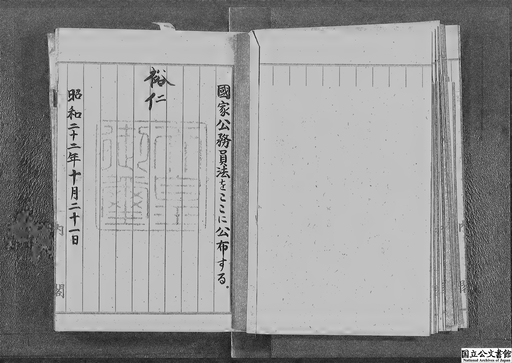 國家公務員法をここに公布する。
裕仁
天皇御璽
昭和二十二年十月二十一日
内閣
国立公文書館
National Archives of Japan